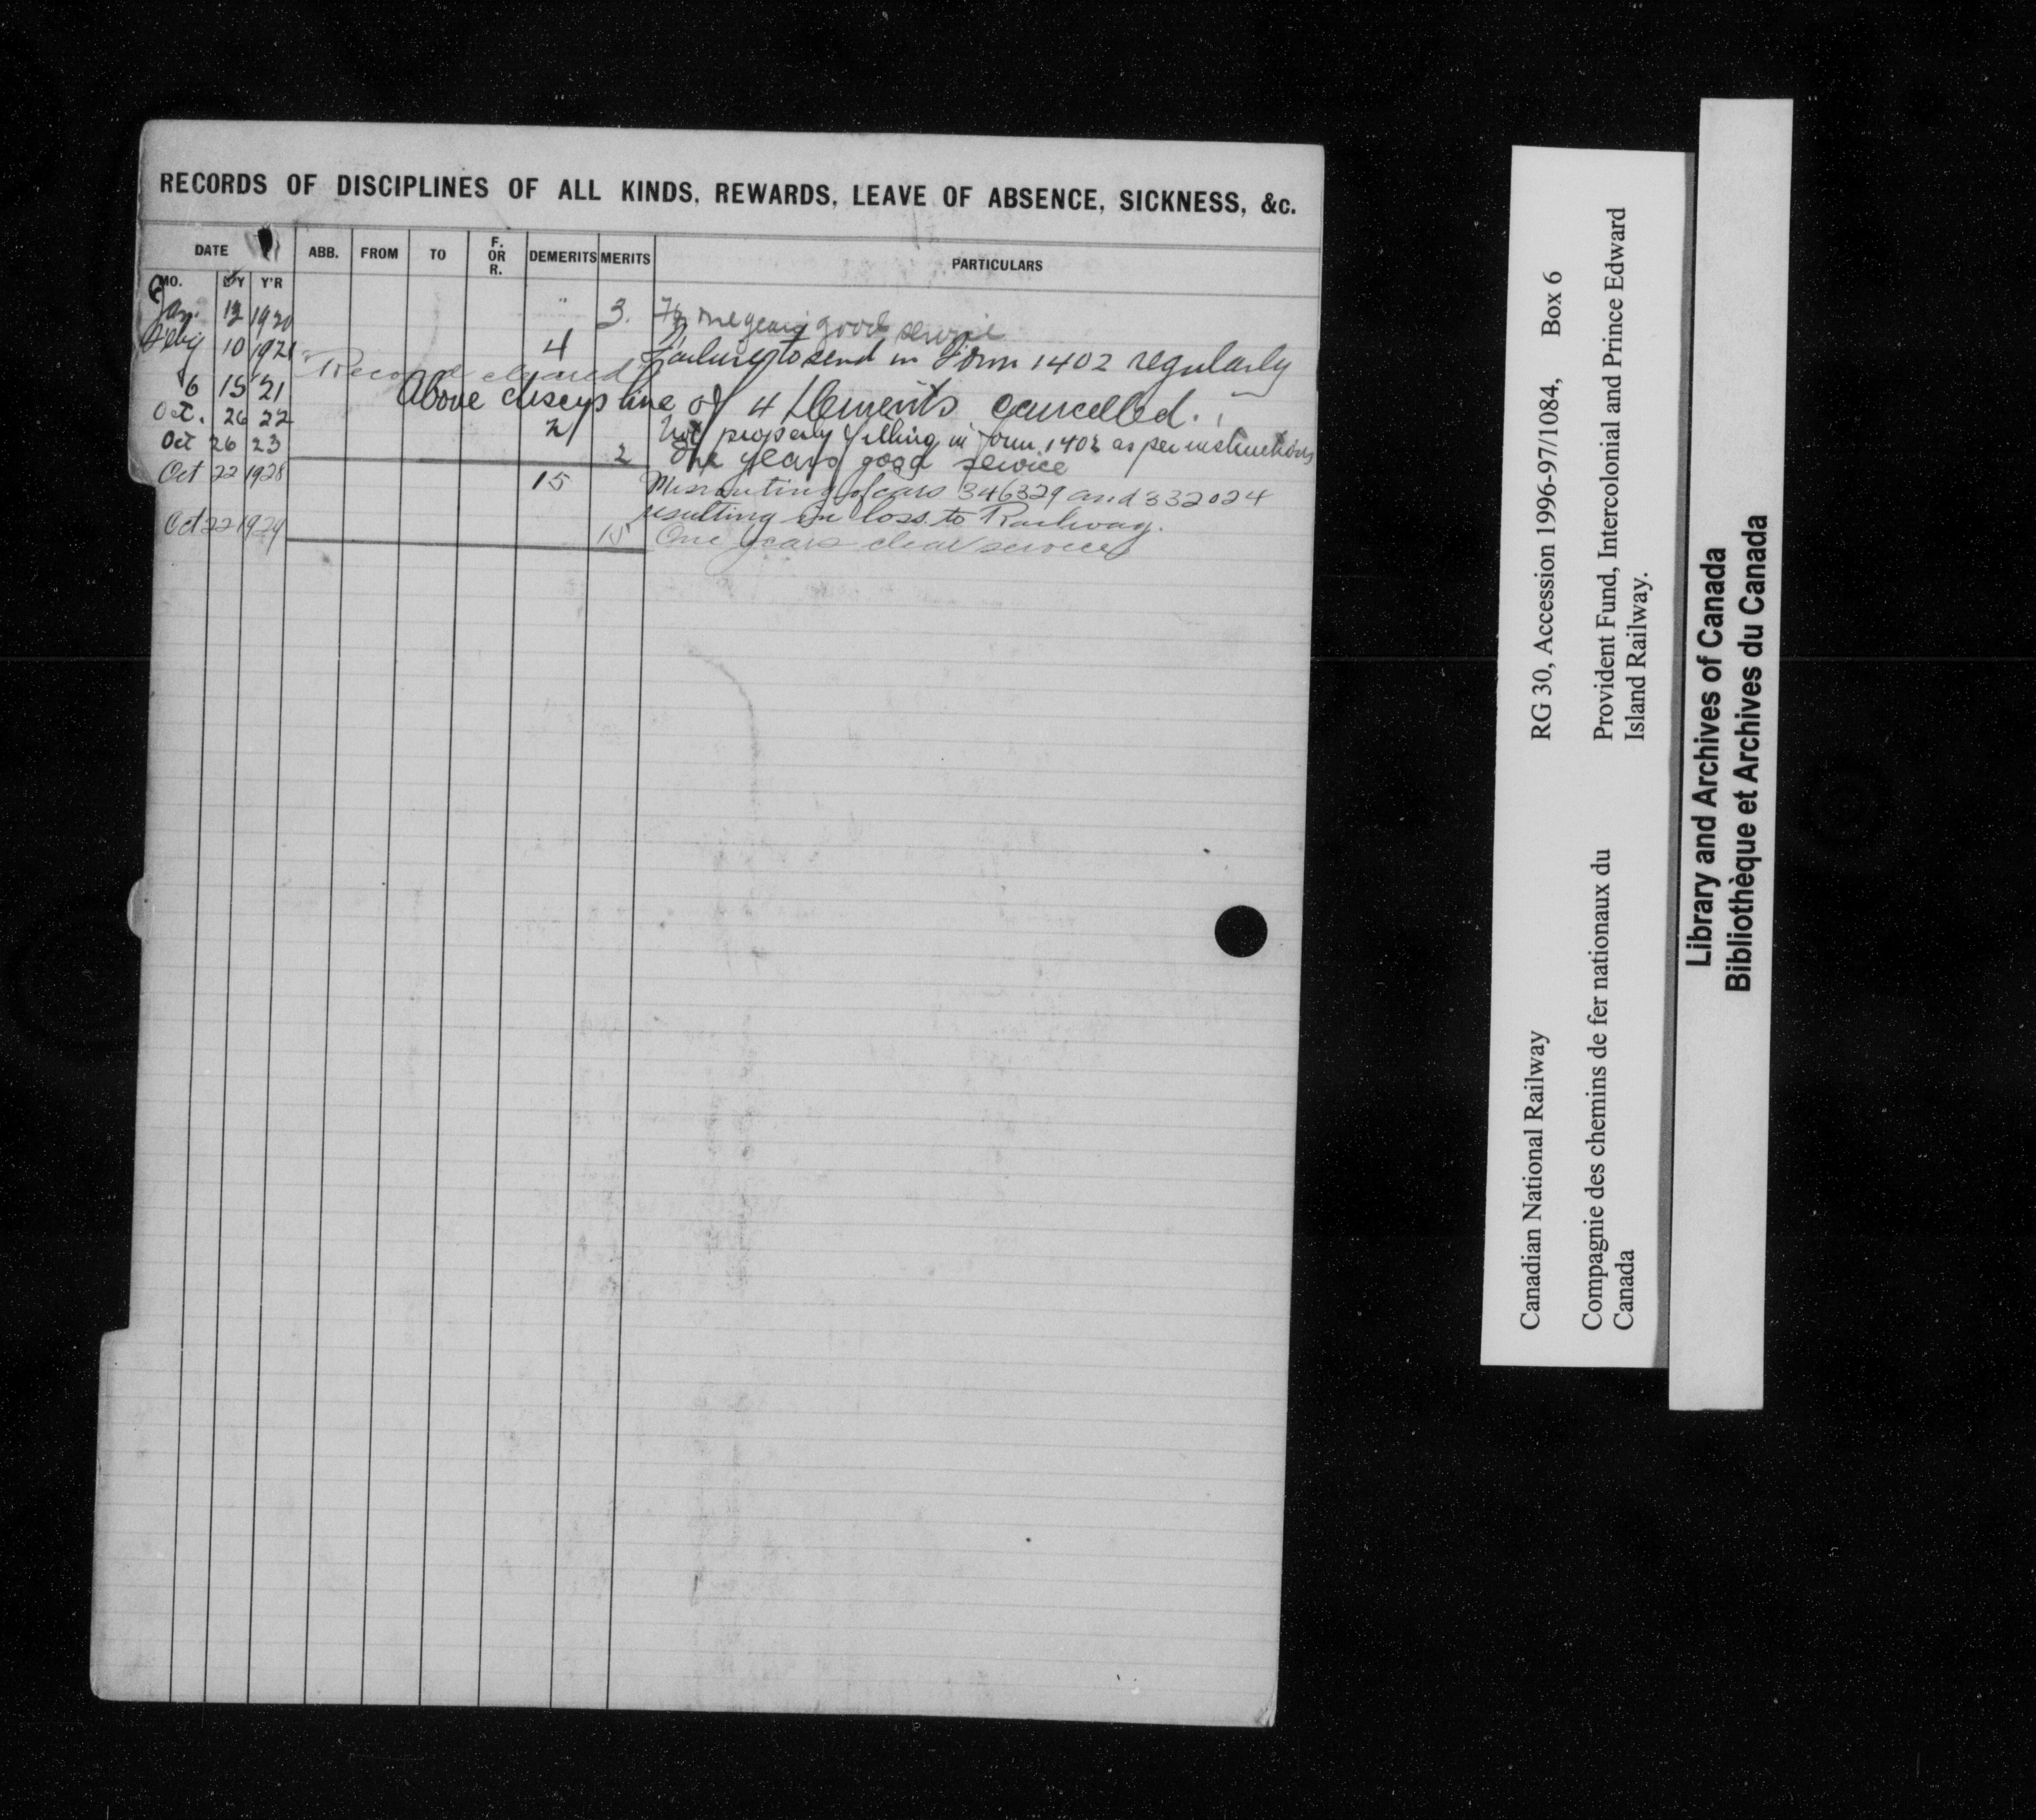 RECORDS OF DISCIPLINES OF ALL KINDS, REWARDS, LEAVE OF ABSENCE, SICKNESS, &c.
DATE ABB. FROM TO F. OR R. DEMERITS MERITS PARTICULARS
MO. D'Y Y'R
Jan. 13 1920 3. For one years good service
Feby 10 1921 4 Failure to send in Form 1402 regularly
Record cleared
6 15 21 Above discipline of 4 Demerits cancelled.
Oct. 26 22 2 Not properly filling in form 1402 as per instructions
Oct 26 23 2 One years good service
Oct 22 1928 15 Misrouting of cars 346329 and 332024
resulting in loss to Railway.
Oct 22 1929 15 One years clear service
Canadian National Railway RG 30, Accession 1996-97/1084, Box 6
Compagnie des chemins de fer nationaux du Provident Fund, Intercolonial and Prince Edward
Canada Island Railway.
Library and Archives of Canada
Bibliothèque et Archives du Canada